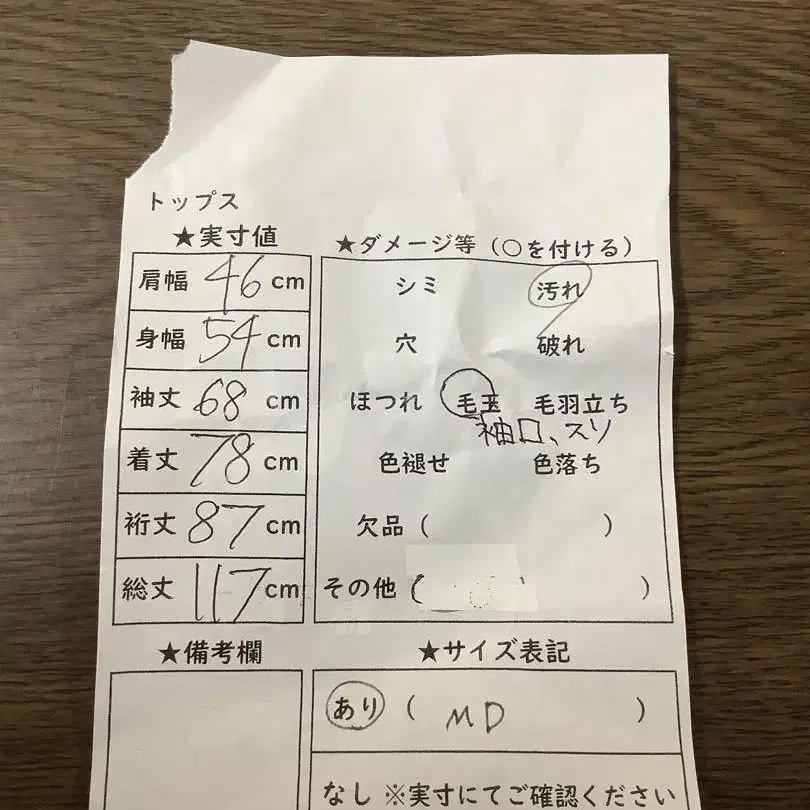 トップス
★実寸値
肩幅 46 cm
身幅 54 cm
袖丈 68 cm
着丈 78 cm
裄丈 87 cm
総丈 117 cm
★ダメージ等（○を付ける）
シミ 汚れ
穴 破れ
ほつれ 毛玉 毛羽立ち
袖口、スソ
色褪せ 色落ち
欠品（ ）
その他（ ）
★備考欄
★サイズ表記
あり （ MD ）
なし ※実寸にてご確認ください